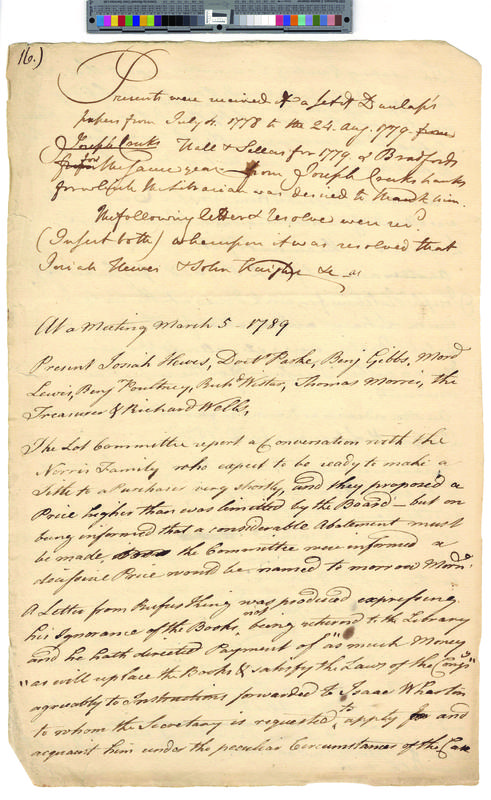 16.)
Presents were recieved of a Set of Dunlap's
papers from July 4. 1778 to the 24. Aug. 1779 from
Joseph Cruks Hall & Sellers for 1779 & Bradfords
for the same year from Joseph Crukshanks
for which the Librarian was desired to thank him.
The following letter & Resolve were rec.d
(Insert both) whereupon it was resolved that
Josiah Hewes & John Kaighn &c as
At a Meeting March 5 - 1789
Present Josiah Hewes, Doct Parke, Benj Gibbs, Mord
Lewis, Benj Poultney, Rich.d Wister, Thomas Morris, the
Treasurer & Richard Wells,
The Lot Committee report a Conversation with the
Norris Family who expect to be ready to make a
Title to a Purchaser very shortly, and they proposed a
Price higher than was limitted by the Board - but on
being informed that a considerable Abatement must
be made, the Committee were informed a
decisive Price would be named to morrow Morn.g
A Letter from Rufus King was produced expressing
his Ignorance of the Books not being return'd to the Library
and he hath directed Payment of "as much Money
"as will replace the Books & satisfy the Laws of the Comp.y"
agreeably to Instructions forwarded to Isaac Wharton
to whom the Secretary is requested to apply and
acquaint him under the peculiar Circumstances of the Case